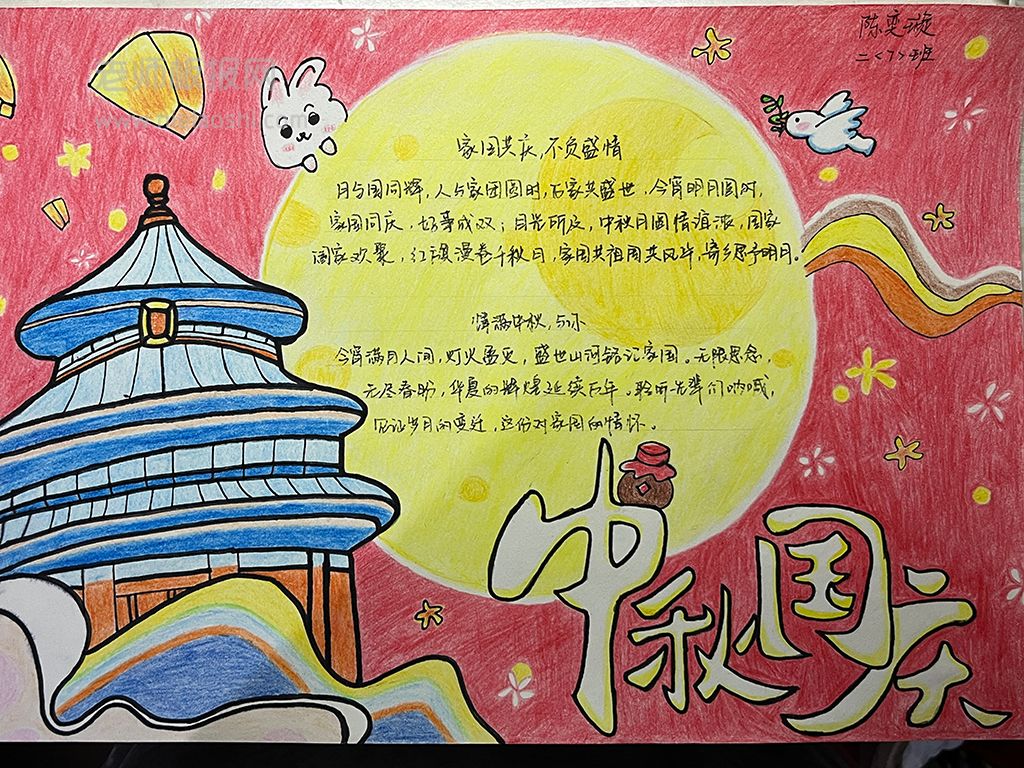 陈奕璇
二<7>班
老师板报网
家国共庆,不负盛情
月与国同辉,人与家团圆时,百家共盛世,今宵明月圆时,
家国同庆,好事成双;目光所及,中秋月圆情谊浓,国家
国家欢聚,红旗漫卷千秋月,家国共祖国共风华,寄乡思予明月。
辉满中秋,与你
今宵满月人间,灯火通天,盛世山河铭记家国。无限思念,
无尽春盼,华夏的辉煌延续百年。聆听先辈们呐喊,
见证岁月的变迁,这份对家国的情怀。
中秋国庆